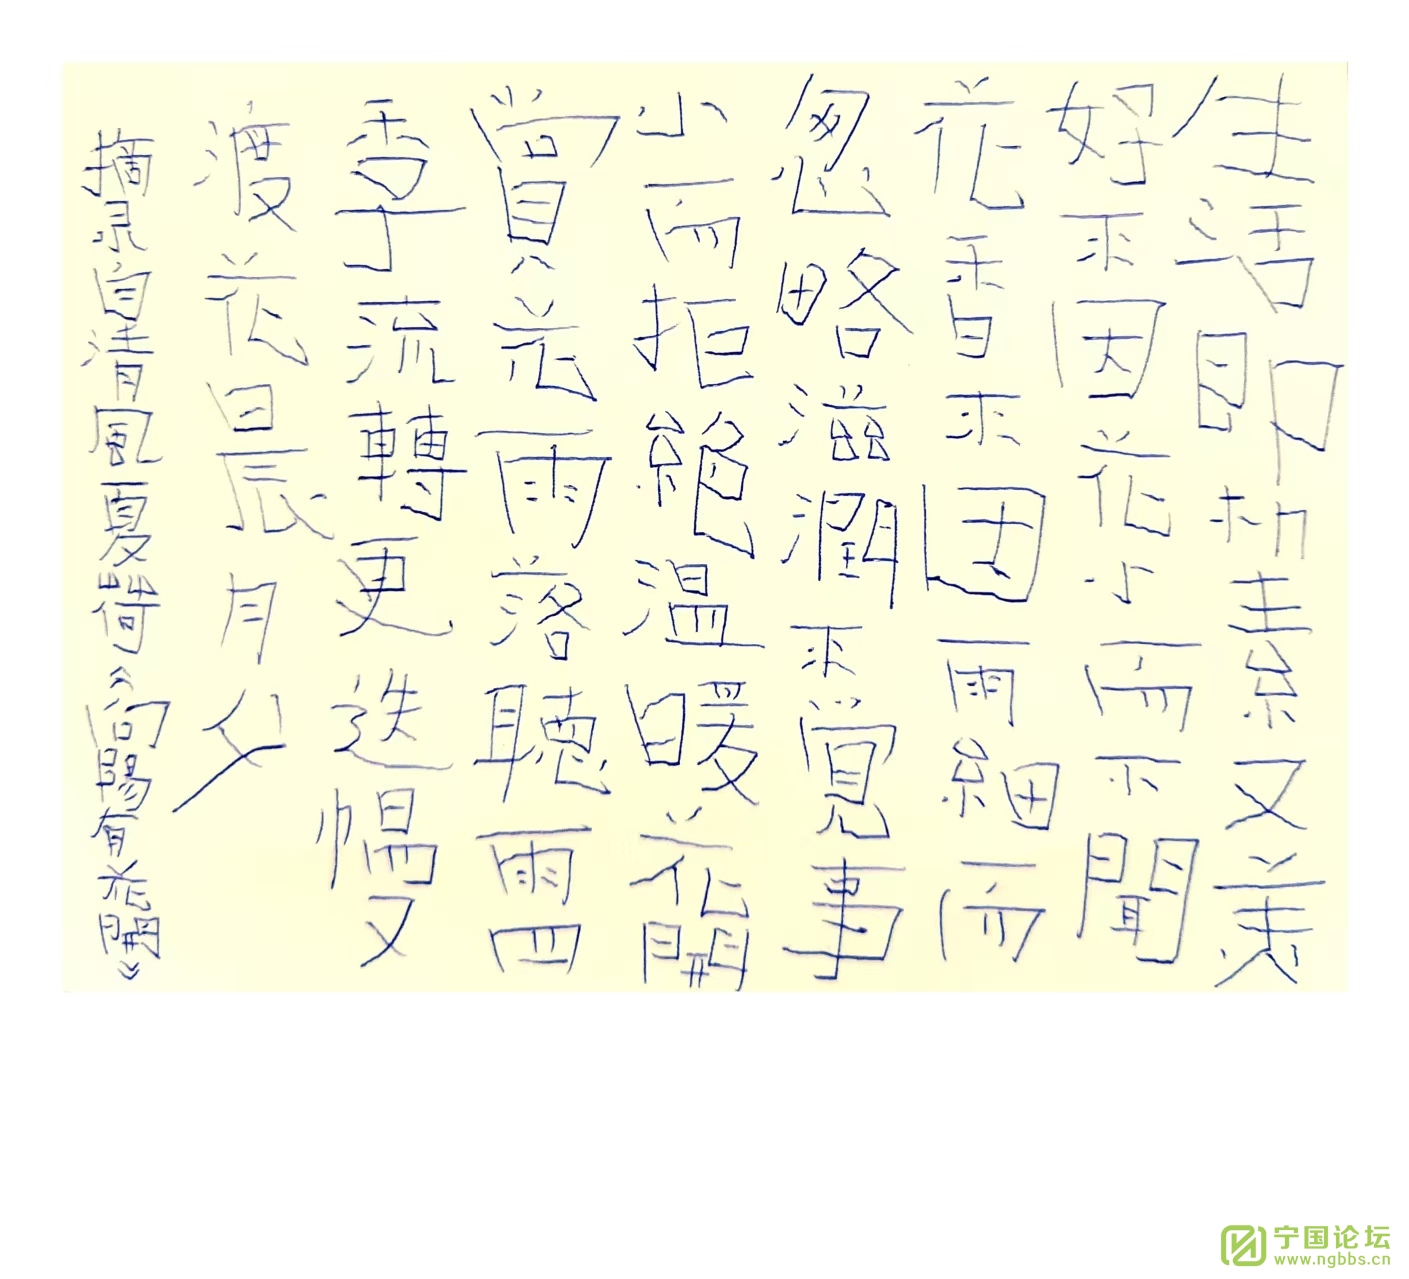 生活即朴素又美
好不因花小而不聞
花香不因雨細而
忽略滋潤不覺事
小而拒絕温暖花開
賞花雨落聽雨四
季流轉更迭幔又
渡花晨月夕
摘录自清風夏荷《向陽有花開》
宁国论坛
www.ngbbs.cn